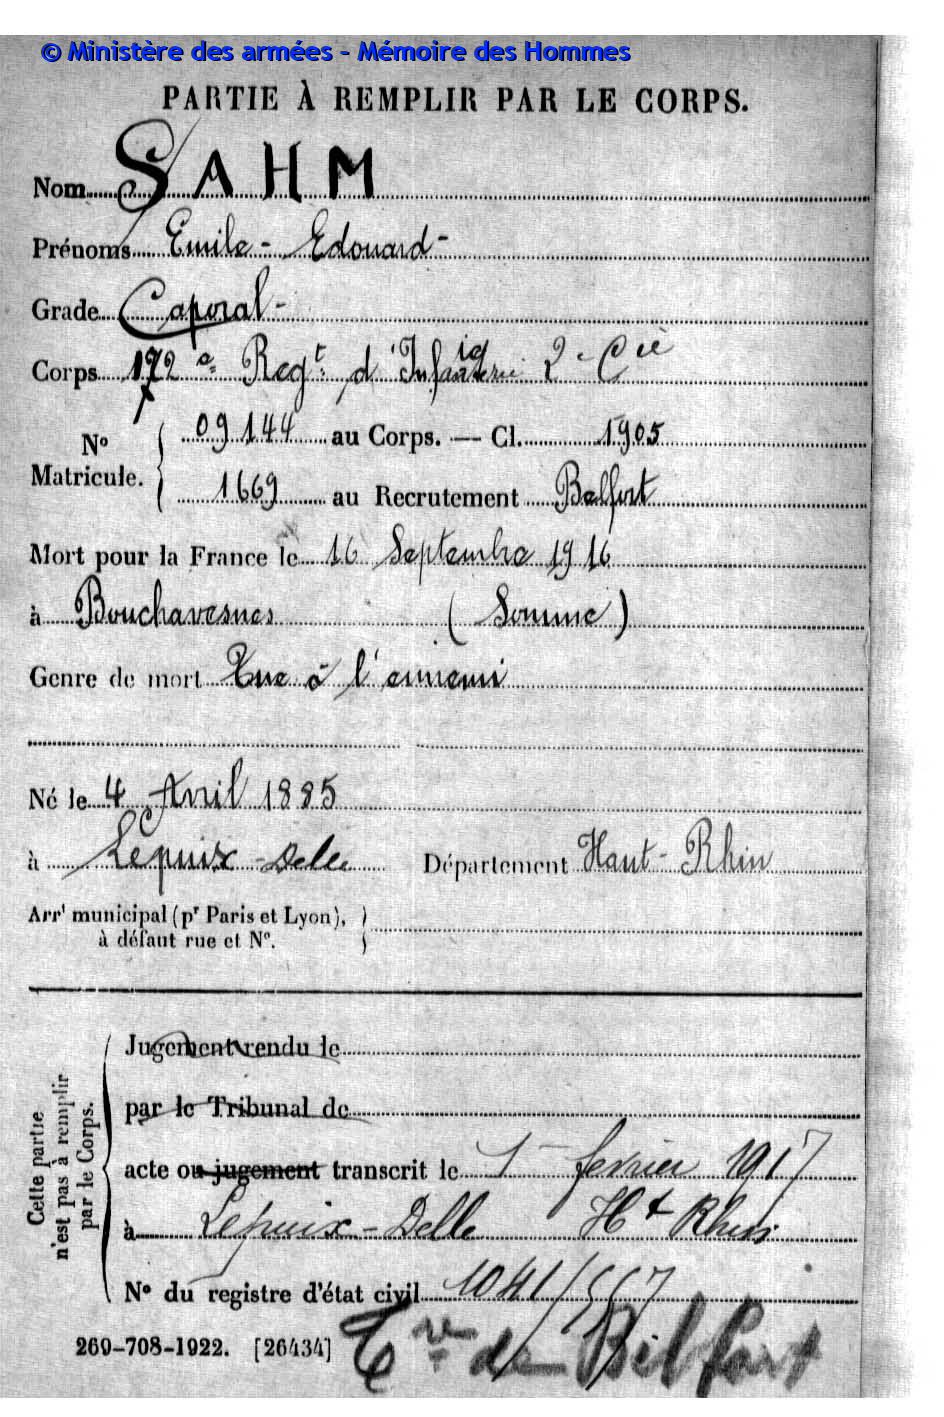 © Ministère des armées - Mémoire des Hommes
PARTIE À REMPLIR PAR LE CORPS.
Nom SAHM
Prénoms Emile - Edouard -
Grade Caporal -
Corps 172e Regt d'Infanterie 2e Cie
No Matricule. 09144 au Corps. — Cl. 1905
1669 au Recrutement Belfort
Mort pour la France le 16 Septembre 1916
à Bouchavesnes (Somme)
Genre de mort Tué à l'ennemi
Né le 4 Avril 1885
à Lepuix - Delle Département Haut-Rhin
Arrt municipal (pr Paris et Lyon),
à défaut rue et No.
Cette partie
n'est pas à remplir
par le Corps.
Jugement rendu le
par le Tribunal de
acte ou jugement transcrit le 1 fevrier 1917
à Lepuix - Delle Ht Rhin
No du registre d'état civil 1041/557
269-708-1922. [26434]
Tre de Belfort